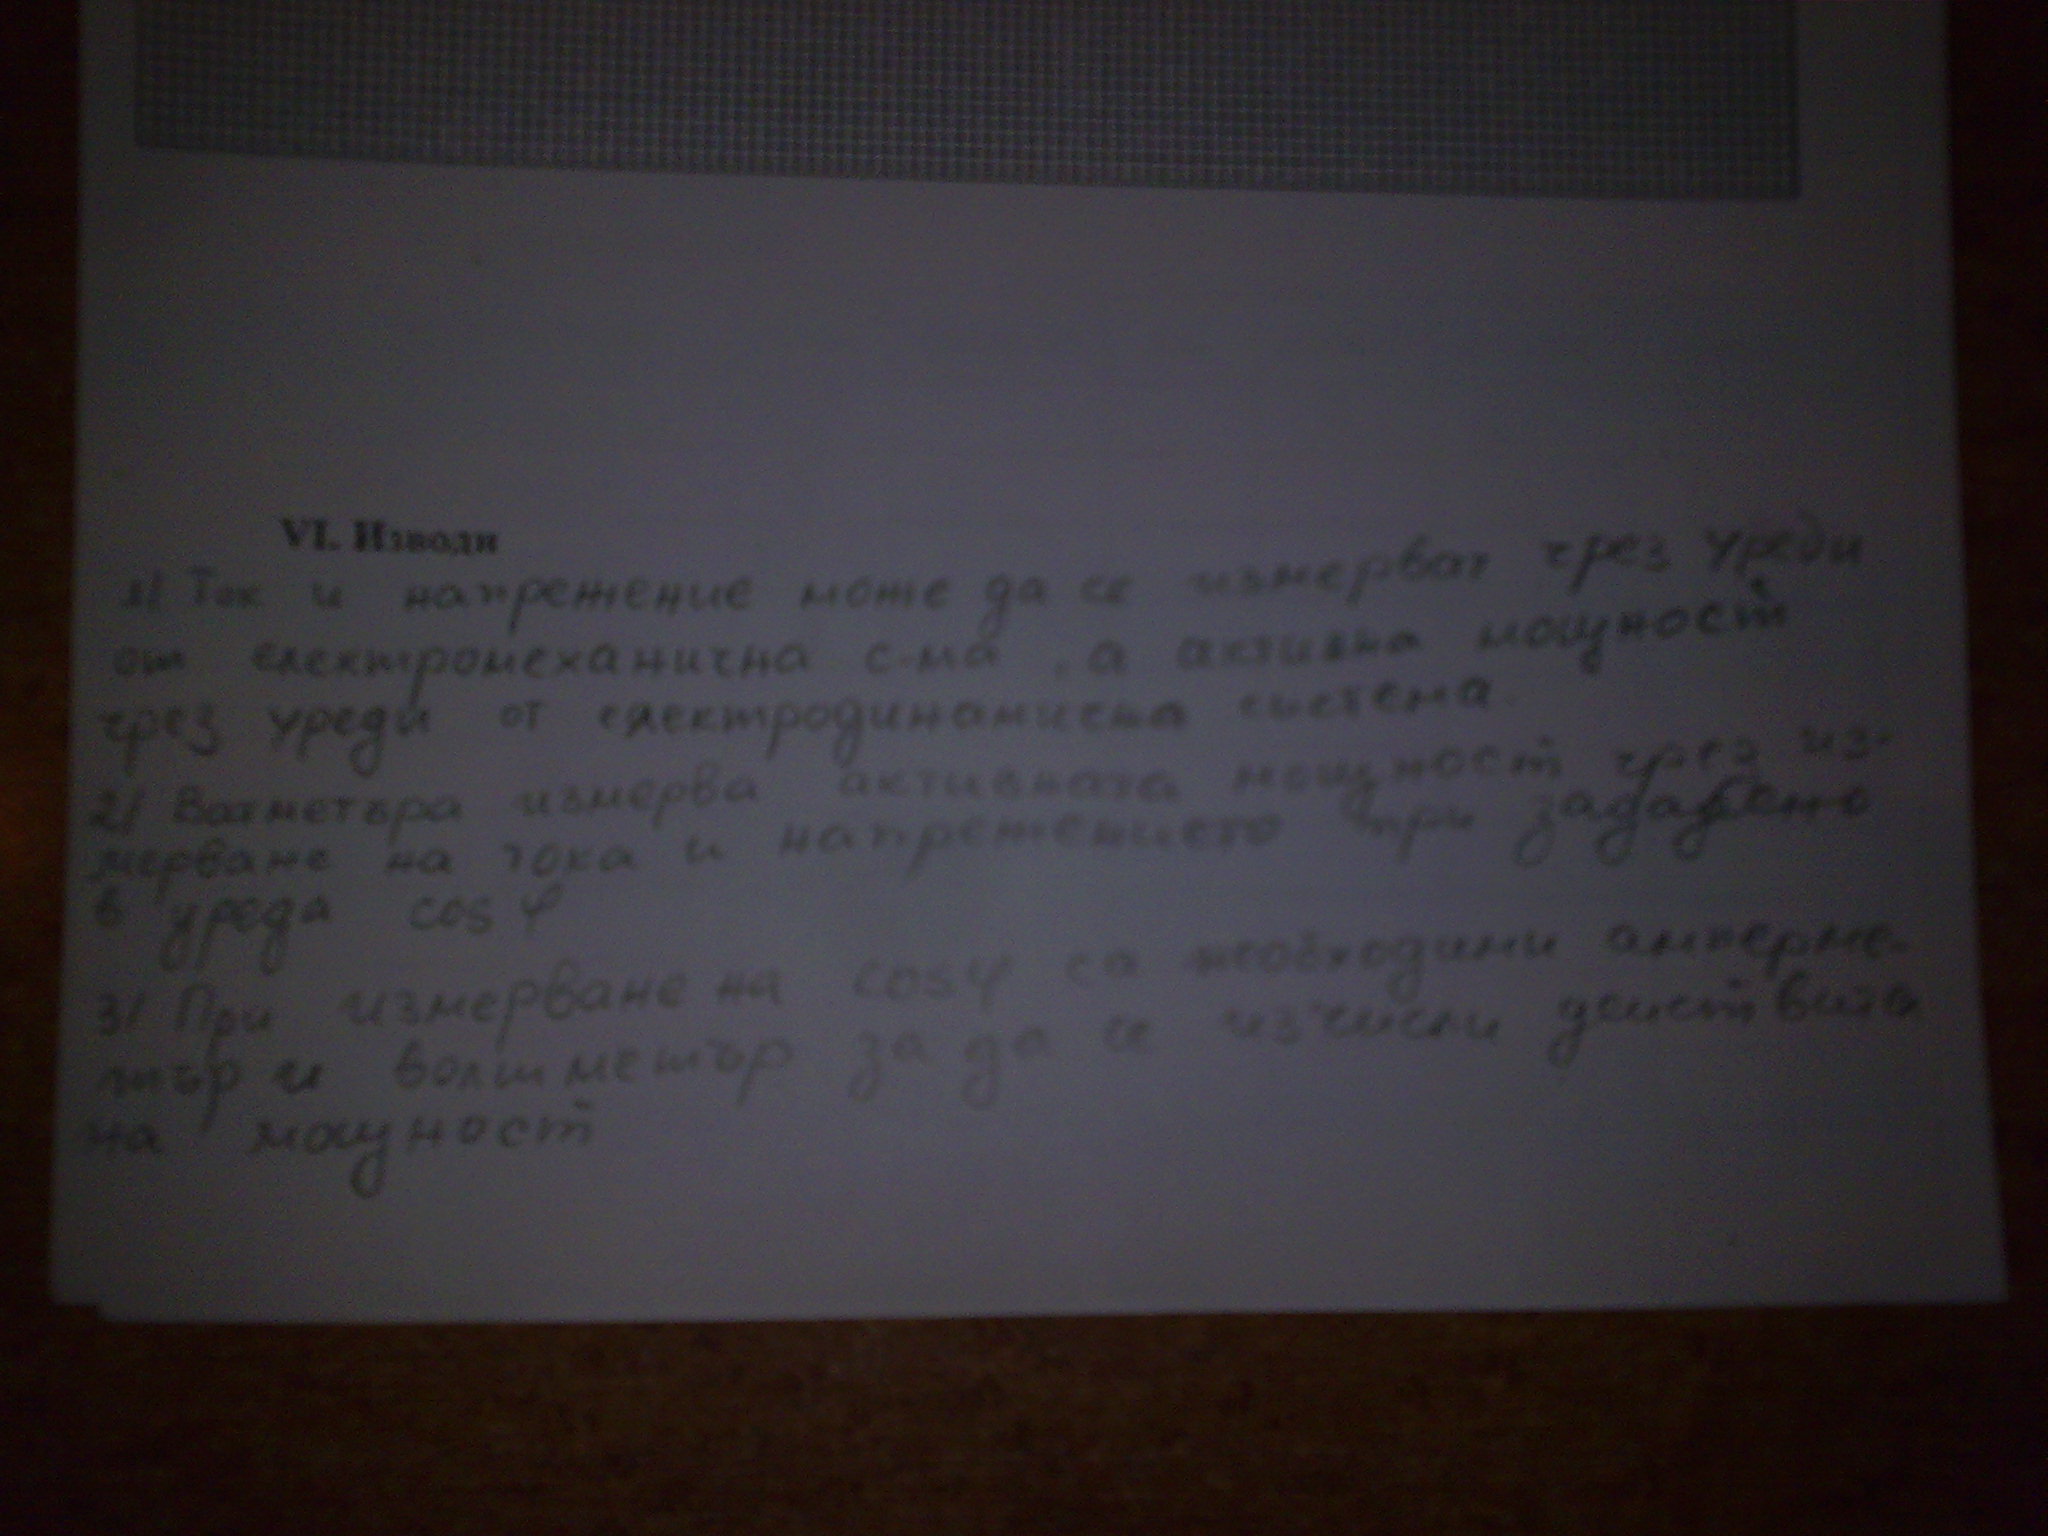 VI. Изводи
1/ Ток и напрежение може да се измерват чрез уреди
от електромеханична с-ма, а активна мощност
чрез уреди от електродинамична система.
2/ Ватметъра измерва активната мощност чрез из-
мерване на тока и напрежението при зададено
в уреда cos φ
3/ При измерване на cos φ са необходими амперме-
тър и волтметър за да се изчисли действите
на мощност